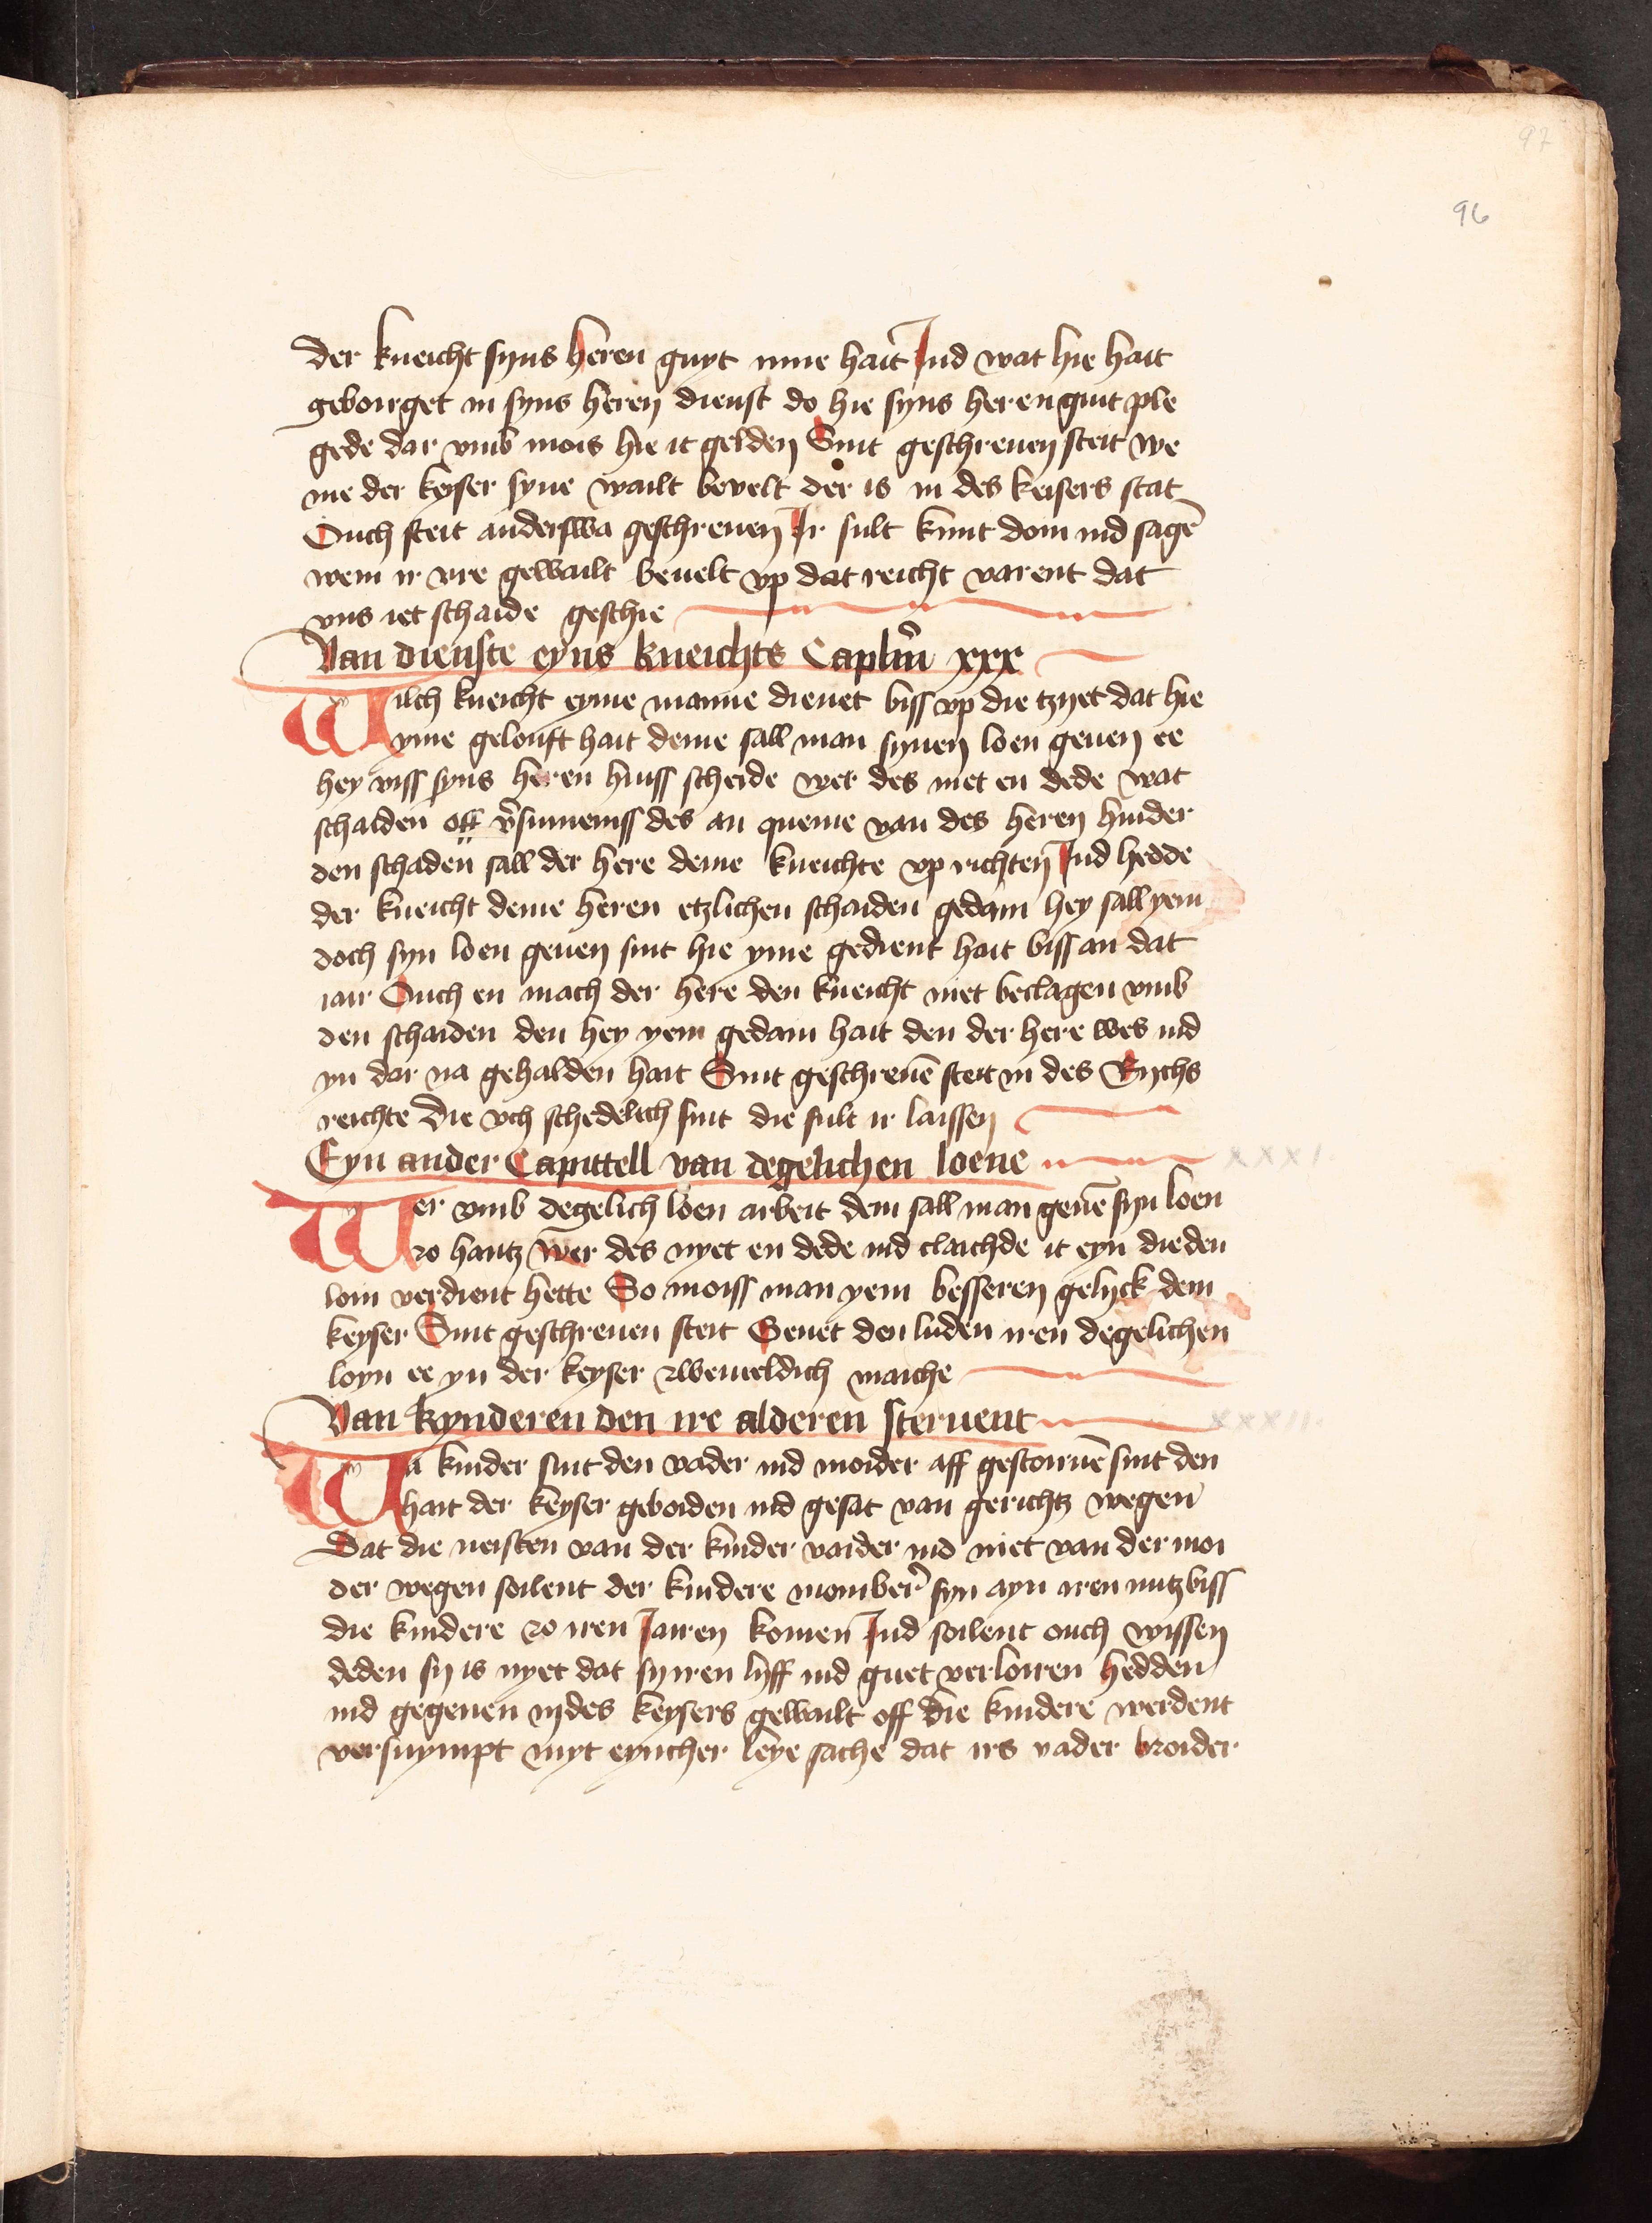 97
96
der kneicht syns heren guyt inne hait Ind wat hie hait
geborget in syns heren dienst do hie syns heren guit ple
gede dar vmb mois hie it gelden Sint geschreuen steit we
me der keyser syne wailt bevelt der is in des keisers stat
Ouch steit anderswa geschreuen Ir sult kunt doin ind sagē
wem ir vre gewailt beuelt vp dat reicht varent dat
vns iet schaide geschie
Van dienste eyns kneichts Caplm̄ xxx
Wilch kneicht eyme manne dienet biss vp die tzyet dat hie
yme gelouft hait deme sall man synen loen geuen ee
hey viss syns heren huiss scheide wer des niet en dede wat
schalden off v̄sumeniss des an queme van des heren hinder
den schaden sall der here deme kneichte vp richten Ind hedde
der kneicht deme heren etzlichen schaiden gedain hey sall yem
doch syn loen geuen sint hie yme gedient hait biss an dat
iair Ouch en mach der here den kneicht niet beclagen vmb
den schaiden den hey yem gedain hait den der here wes ind
yn dar na gehalden hait Sint geschreuē steit in des Rychs
reichte die vch schedelich sint die sult ir laissen
Eyn ander Capittell van degelichen loene xxxi.
Wer vmb degelich loen arbeit dem sall man geuē syn loen
zo hantz wer des nyet en dede ind claichde it eyn die den
loin verdient hette So moiss man yem besseren gelyck dem
keyser Sint geschreuen steit Geuet den luden iren degelichen
loyn ee yn der keyser zweueldich maiche
Van kynderen den ire alderen steruent xxxii.
Wa kinder sint den vader ind moider aff gestoruē sint den
hait der keyser geboiden ind gesat van gerichtz wegen
Dat die neisten van der kinder vaider ind niet van der moi
der wegen soilent der kindere momber̄ syn ayn iren nutz biss
die kindere zo iren Jairen komen Ind soilent ouch wissen
deden sy is nyet dat sy iren lyff ind guet verloiren hedden
ind gegeuen in des keysers gewailt off die kindere werdent
versuympt myt eyncher leye sache dat irs vader broider